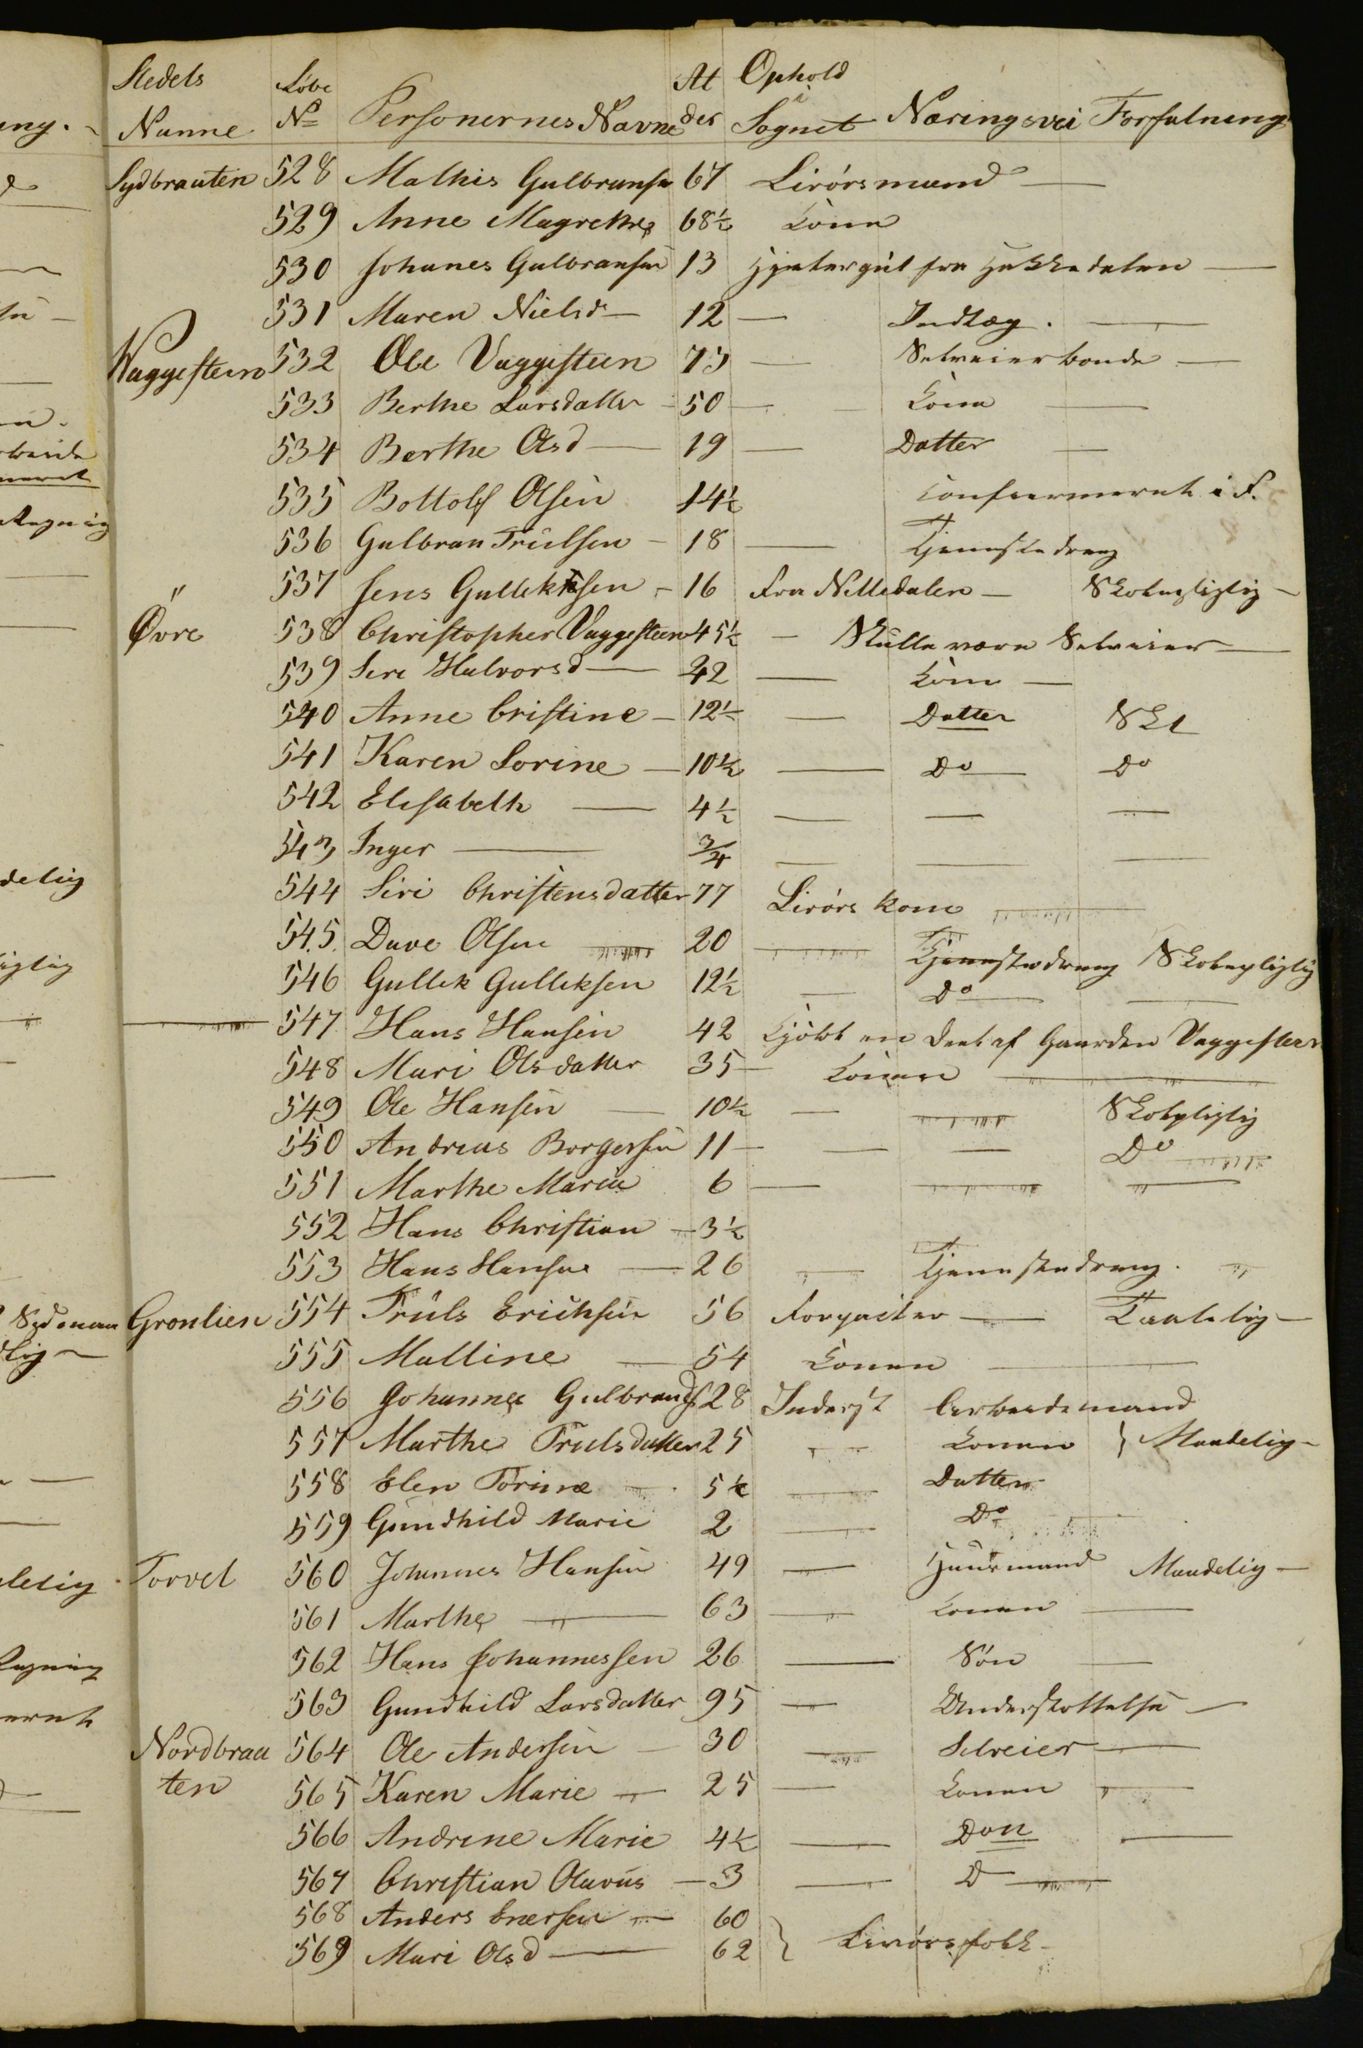 Stedets Løbe Al Ophold
Nanne No Personernes Navne der i Sognet Næringsvei Forfatning
Sydbrauten 528 Mathis Gulbransen 67 Livørsmand —
529 Anne Magrethe 68½ Kone
530 Johanes Gulbransen 13 Gjetergut fra Hakkedalen —
531 Maren Nielsd — 12 — Indlæg. —
Waggesteen 532 Ole Vaggesteen 73 — Selveierbonde —
533 Berthe Larsdatter - 50 — Kone —
534 Berthe Olsd — 19 — Datter —
535 Bottolf Olsen 14½ Confeermeret i F.
536 Gulbran Trulsen - 18 — Tjenestedreng
537 Jens Gulleksen - 16 fra Nittedalen — Skolepligtig —
Øvre 538 Christopher Vaggesteen 45½ — Skulle være Selveier —
539 Siri Halvorsd — 42 — Kone —
540 Anne Cristine — 12½ — Datter Skl
541 Karen Sorine — 10½ — Do Do
542 Elisabeth — 4½ — — —
543 Inger — 3/4 — — —
544 Siri Christensdatter 77 Livørs kone —
545. Dave Olsen — 20 — Tjenestedreng Skolepligtig
546 Gullek Gulleksen 12½ — Do —
— 547 Hans Hansen 42 Kjöbt en Deel af Gaarden Vaggesteen
548 Mari Olsdatter 35 — Konen —
549 Ole Hansen — 10½ — — Skolepligtig
550 Andreas Borgersen 11 — — — Do —
551 Marthe Marie 6 — — —
552 Hans Christian — 3½
553 Hans Hansen — 26 — Tjenestedreng. —
Gronlien 554 Truls Erichsen 56 Forpacter — Taalelig —
555 Malline — 54 Konen —
556 Johannes Gulbrands 28 Inderst Arbeidsmand
557 Marthe Trulsdatter 25 — Konen } Maadelig —
558 Elen Torine — 5½ — Datter
559 Gundhild Marie 2 — Do —
Torvet 560 Johannes Hansen 49 — Huusmand Maadelig —
561 Marthe — 63 — Konen —
562 Hans Johannessen 26 — Søn —
563 Gundhild Larsdatter 95 — Understøttelse —
Nordbrau 564 Ole Andersen — 30 — Selveier —
ten 565 Karen Marie — 25 — Konen —
566 Andrine Marie 4½ — Don —
567 Christian Olavus — 3 — D —
568 Anders Enersen — 60
569 Mari Olsd — 62 } Livørsfolk —